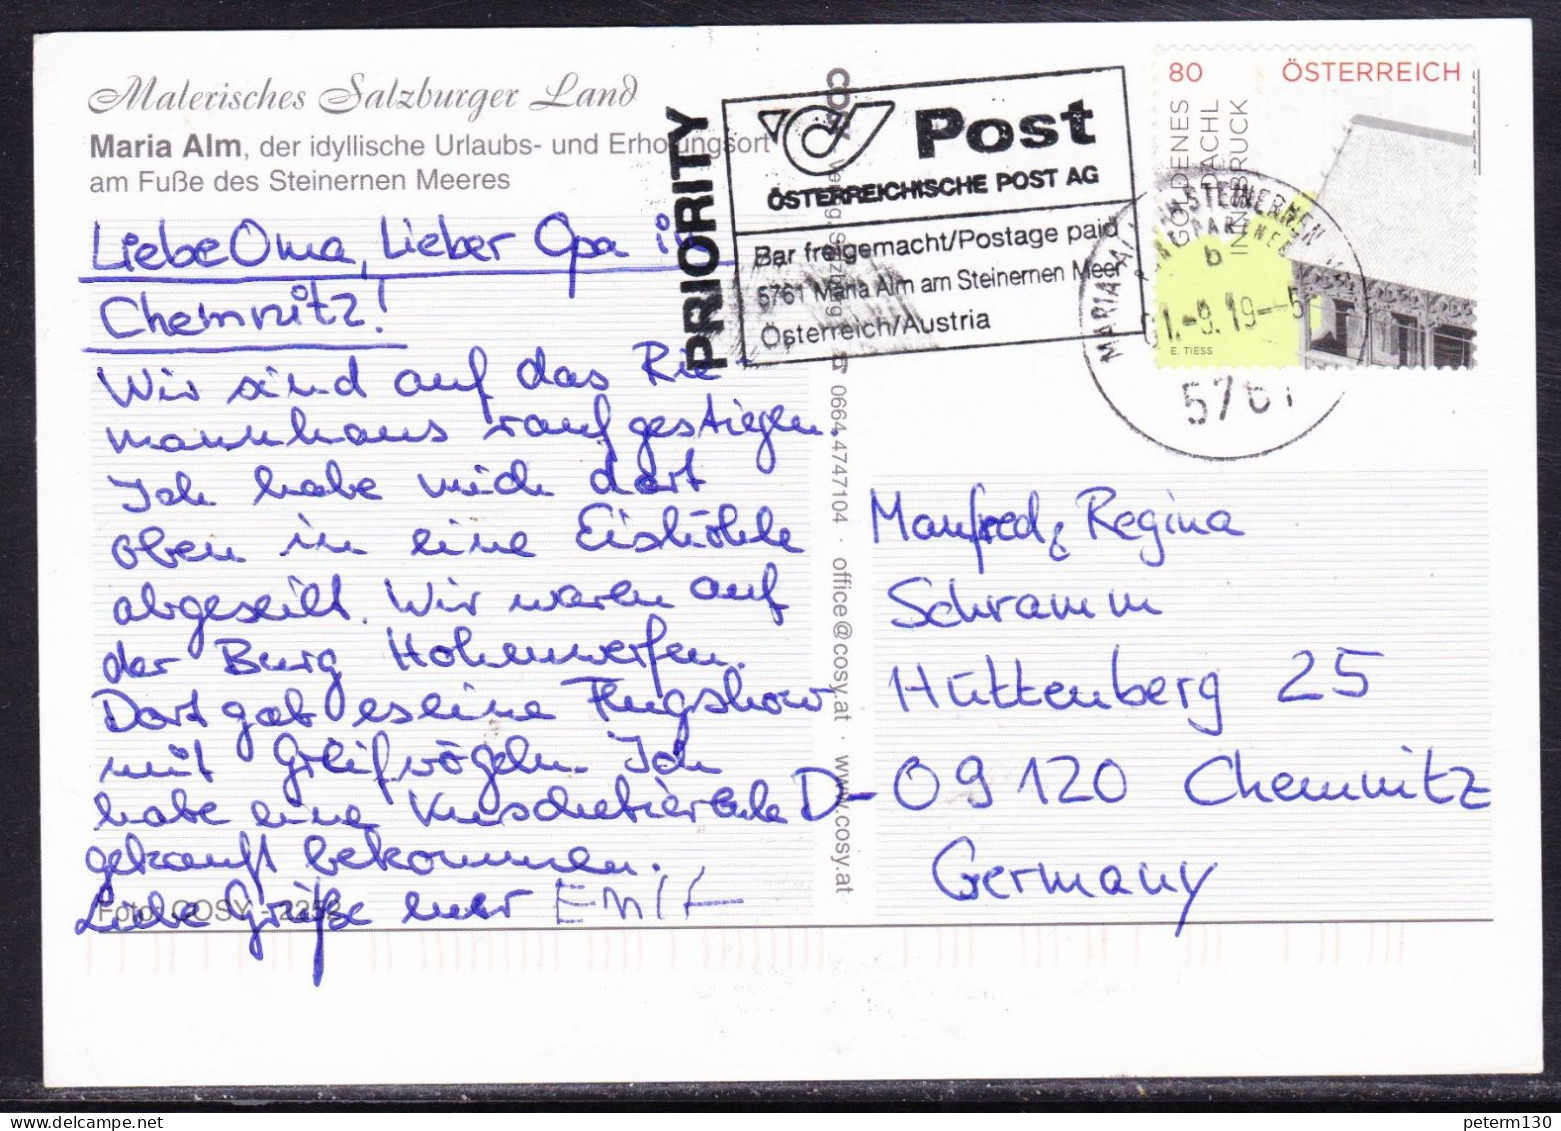 Malerisches Salzburger Land
Maria Alm, der idyllische Urlaubs- und Erholungsort
am Fuße des Steinernen Meeres
Liebe Oma, Lieber Opa in
Chemnitz!
Wir sind auf das Rie-
mannhaus rauf gestiegen.
Ich habe mich dort
oben in eine Eishöhle
abgeseilt. Wir waren auf
der Burg Hohenwerfen.
Dort gab es eine Flugshow
mit Greifvögeln. Ich
habe eine Kuscheltiereule
gekauft bekommen.
Liebe Grüße euer EMIL
Foto: COSY - 2252
COSY Verlag, Salzburg
0664 4747104 · office@cosy.at · www.cosy.at
PRIORITY
Post
ÖSTERREICHISCHE POST AG
Bar freigemacht/Postage paid
5761 Maria Alm am Steinernen Meer
Österreich/Austria
80 ÖSTERREICH
GOLDENES
DACHL
INNSBRUCK
E. TIESS
MARIA ALM AM STEINERNEN
POSTPARTNER
b
-9.19--5
5761
Manfred & Regina
Schramm
Hüttenberg 25
D-09120 Chemnitz
Germany
peterm130